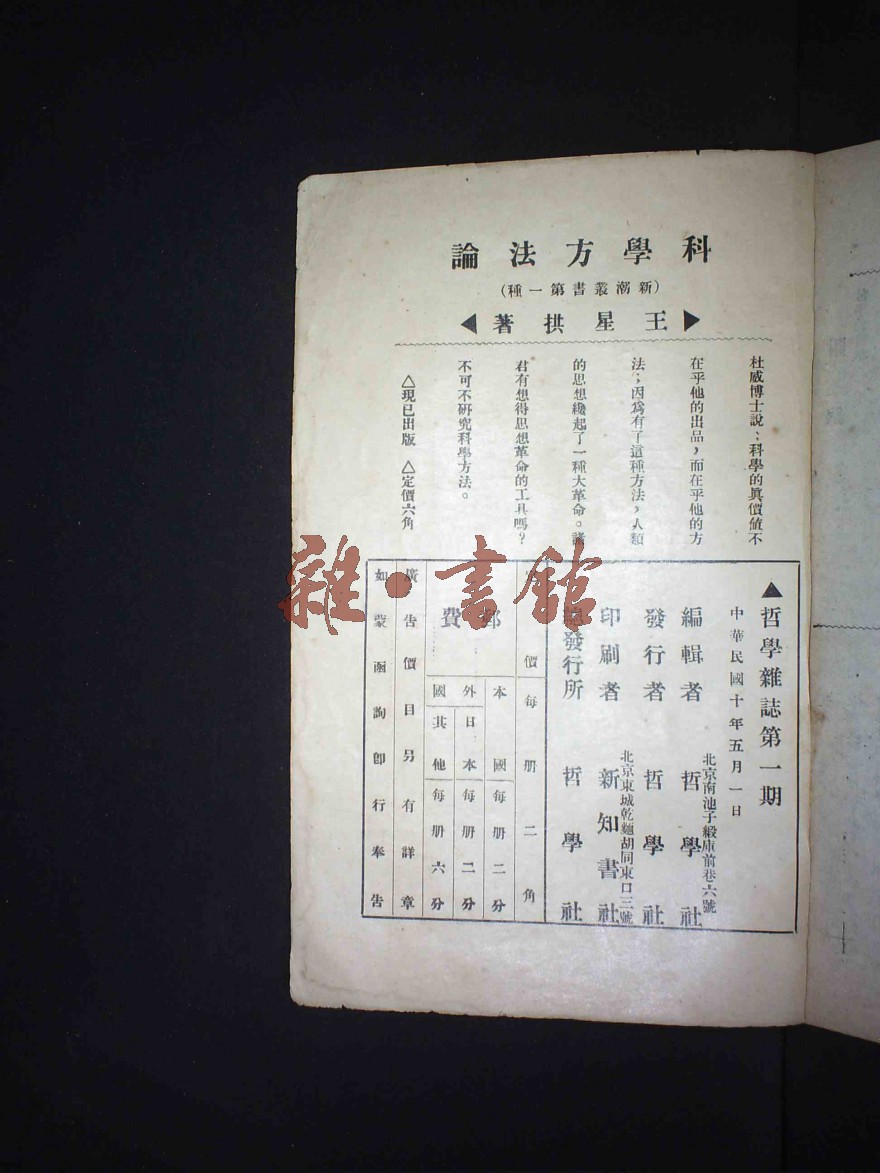 科學方法論
(新潮叢書第一種)
▶王星拱著◀
杜威博士說：科學的眞價値不
在乎他的出品，而在乎他的方
法；因爲有了這種方法，人類
的思想纔起了一種大革命。諸
君有想得思想革命的工具嗎？
不可不研究科學方法。
△現已出版 △定價六角
▲哲學雜誌第一期
中華民國十年五月一日
北京南池子緞庫前巷六號
編輯者 哲學社
發行者 哲學社
北京東城乾麵胡同東口三號
印刷者 新知書社
發行所 哲學社
價每册二角
郵費
本國每册二分
外國
日本每册二分
其他每册六分
廣告價目另有詳章
如蒙函詢卽行奉告
雜·書館